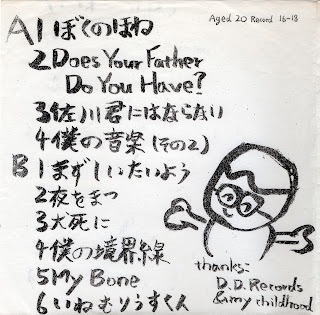 Aged 20 Record 16-18
A1ぼくのほね
2Does Your Father
Do You Have?
3佐川君にはならない
4僕の音楽(その2)
B1まずしいたいよう
2夜をまつ
3犬死に
4僕の境界線
5My Bone
6いねむりうすく人
thanks:
D.D.Records
&my childhood